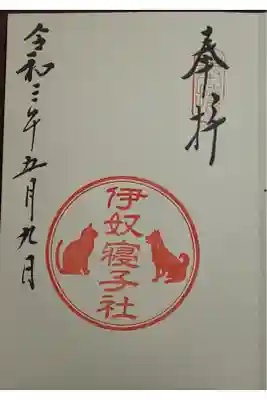 奉拝
伊奴寝子社
令和三年五月九日